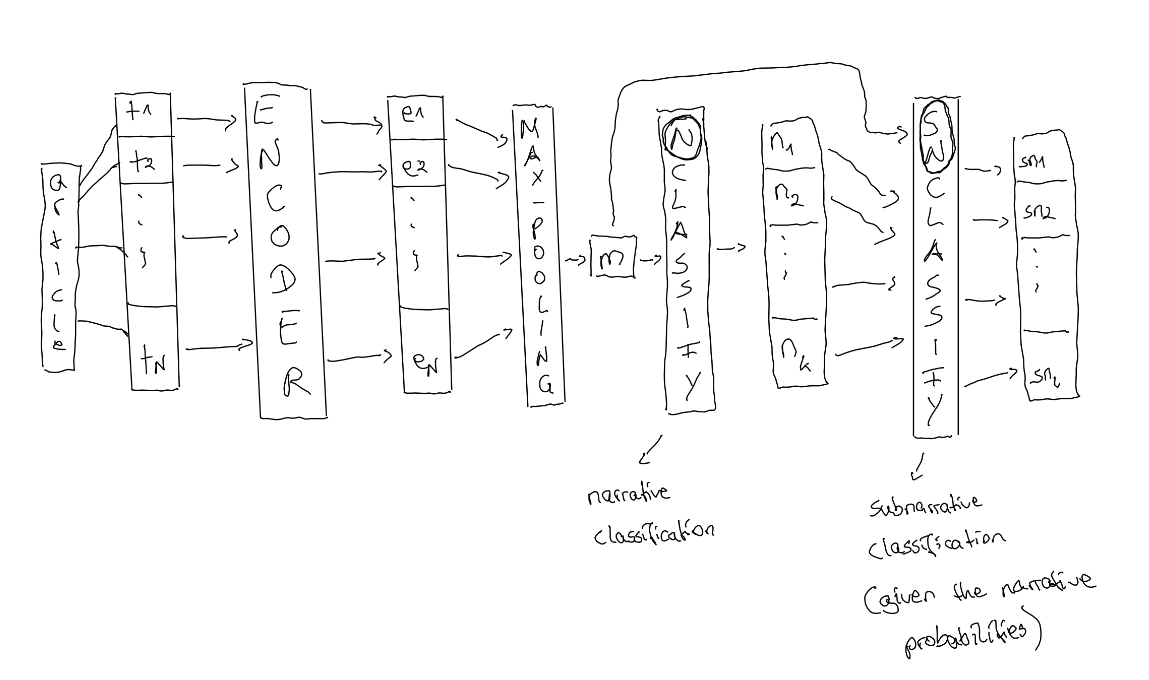 article
t1
t2
tN
ENCODER
e1
e2
eN
MAX-POOLING
m
N CLASSIFY
n1
n2
nk
SN CLASSIFY
sn1
sn2
snL
narrative
classification
subnarrative
classification
(given the narrative
probabilities)